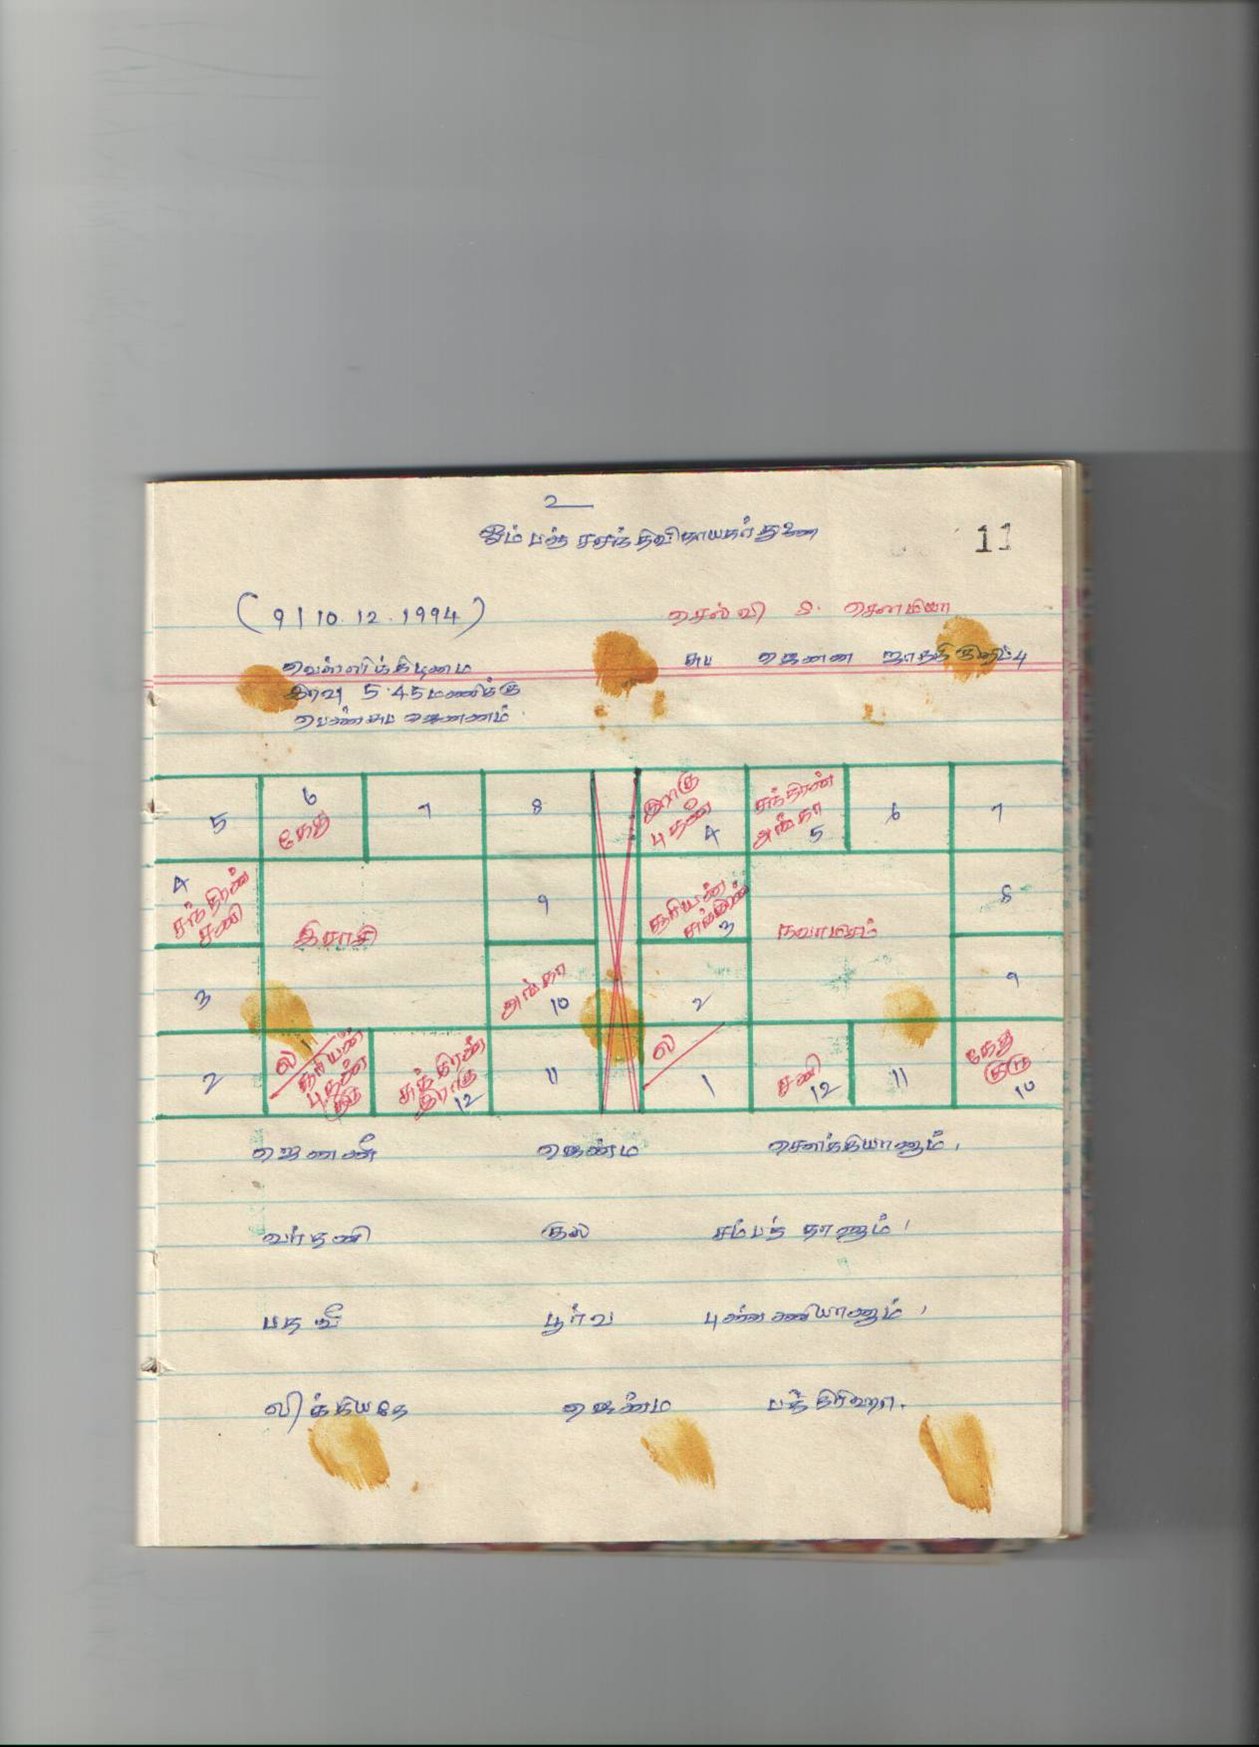 உ
ஓம் பஞ்ச சந்திவிநாயகர் துணை
11
(9/10.12.1994)
செல்வி S. சௌமியா
வெள்ளிக்கிழமை
சுப ஜெனன ஜாதகக்குறிப்பு
இரவு 5.45 மணிக்கு
பெண்சுப ஜெனனம்.
5 6 கேது 7 8 இராகு புதன் 4 சந்திரன் அங்கா 5 6 7
4 சந்திரன் சனி இராசி 9 சூரியன் சுக்கிரன் 3 நவாம்சம் 8
3 அங்கா 10 2 9
2 ல 1 சூரியன் புதன் குரு சுக்கிரன் இராகு 12 11 ல 1 சனி 12 11 கேது குரு 10
ஜெனனீ ஜென்ம சௌக்கியானாம்,
வர்தனி குல சம்பந் தானாம்,
பதவீ பூர்வ புண்ணியானாம்,
லிக்கியதே ஜென்ம பத்திரிகா.